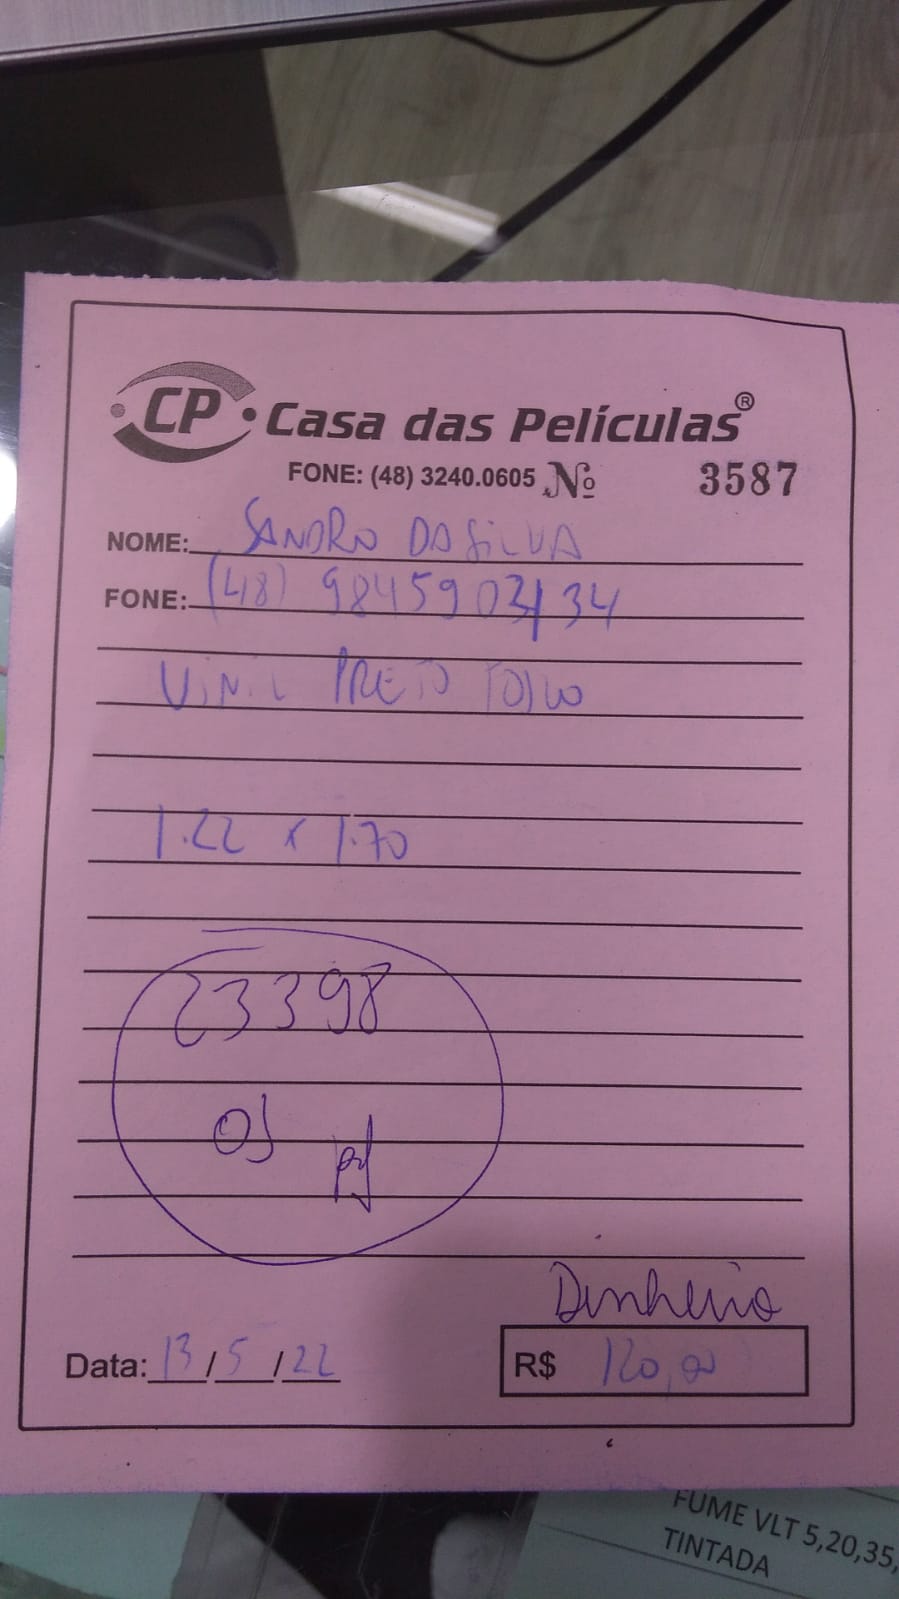 CP Casa das Películas®
FONE: (48) 3240.0605 Nº 3587
NOME: SANDRO DA SILVA
FONE: (48)
VINIL PRETO FOSCO
1.22 x 1.70
23398
OS
Dinheiro
Data: 13/5/22 R$ 120,00
FUME VLT 5,20,35,
TINTADA